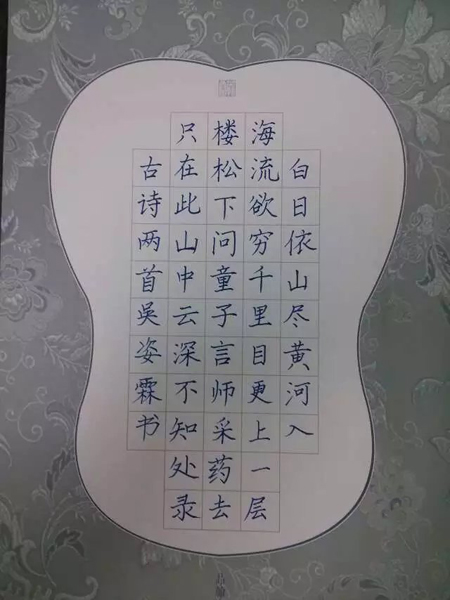 白日依山尽黄河入
海流欲穷千里目更上一层
楼松下问童子言师采药去
只在此山中云深不知处录
古诗两首吴姿霖书